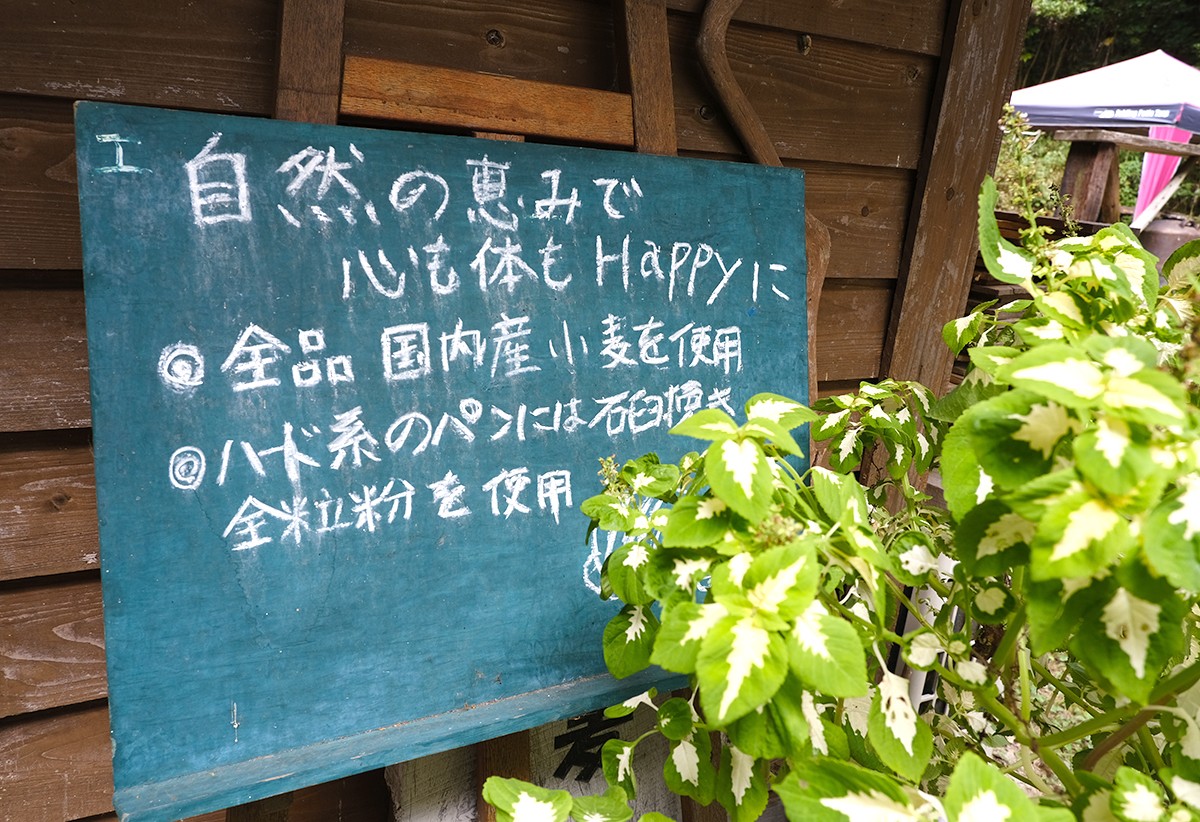 エ
自然の恵みで
心も体も Happyに
◎ 全品 国内産小麦を使用
◎ ハード系のパンには石臼挽き
全粒粉を使用